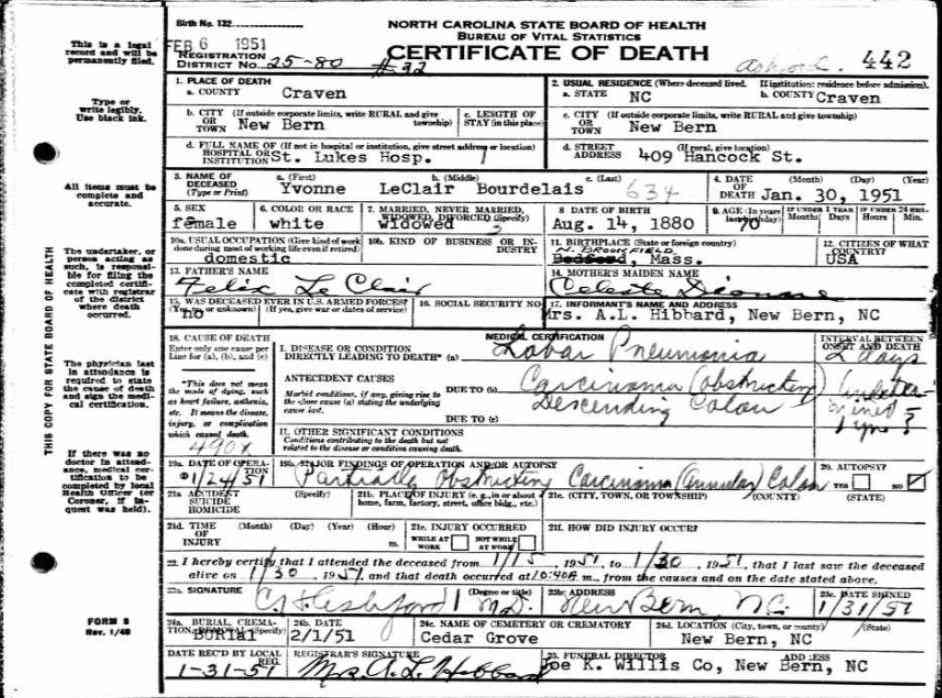 Birth No. 132
NORTH CAROLINA STATE BOARD OF HEALTH
BUREAU OF VITAL STATISTICS
CERTIFICATE OF DEATH
FEB 6 1951
REGISTRATION DISTRICT No. 25-80 #32
442
This is a legal record and will be permanently filed.
Type or write legibly. Use black ink.
All items must be complete and accurate.
The undertaker, or person acting as such, is responsible for filing the completed certificate with registrar of the district where death occurred.
The physician last in attendance is required to state the cause of death and sign the medical certification.
If there was no doctor in attendance, medical certification to be completed by local Health Officer (or Coroner, if inquest was held).
THIS COPY FOR STATE BOARD OF HEALTH
FORM 8
Rev. 1/49
1. PLACE OF DEATH
a. COUNTY Craven
2. USUAL RESIDENCE (Where deceased lived. If institution: residence before admission).
a. STATE NC b. COUNTY Craven
b. CITY OR TOWN (If outside corporate limits, write RURAL and give township) New Bern
c. LENGTH OF STAY (in this place)
c. CITY OR TOWN (If outside corporate limits, write RURAL and give township) New Bern
d. FULL NAME OF HOSPITAL OR INSTITUTION (If not in hospital or institution, give street address or location) St. Lukes Hosp.
d. STREET ADDRESS (If rural, give location) 409 Hancock St.
3. NAME OF DECEASED (Type or Print)
a. (First) Yvonne b. (Middle) LeClair c. (Last) Bourdelais 634
4. DATE OF DEATH (Month) (Day) (Year) Jan. 30, 1951
5. SEX female
6. COLOR OR RACE white
7. MARRIED, NEVER MARRIED, WIDOWED, DIVORCED (Specify) widowed
8 DATE OF BIRTH Aug. 14, 1880
9. AGE (In years last birthday) 70
IF UNDER 1 YEAR Months Days
IF UNDER 24 HRS. Hours Min.
10a. USUAL OCCUPATION (Give kind of work done during most of working life, even if retired) domestic
10b. KIND OF BUSINESS OR INDUSTRY
11. BIRTHPLACE (State or foreign country) N. BROOKFIELD, Mass.
12. CITIZEN OF WHAT COUNTRY? USA
13. FATHER'S NAME Felix Le Clair
14. MOTHER'S MAIDEN NAME Celeste Dionne
15. WAS DECEASED EVER IN U.S. ARMED FORCES? (Yes, no or unknown) (If yes, give war or dates of service) no
16. SOCIAL SECURITY NO.
17. INFORMANT'S NAME AND ADDRESS Mrs. A.L. Hibbard, New Bern, NC
18. CAUSE OF DEATH
Enter only one cause per Line for (a), (b), and (c)
*This does not mean the mode of dying, such as heart failure, asthenia, etc. It means the disease, injury, or complication which caused death.
490X
MEDICAL CERTIFICATION
INTERVAL BETWEEN ONSET AND DEATH
I. DISEASE OR CONDITION DIRECTLY LEADING TO DEATH* (a) Lobar Pneumonia 2 days
ANTECEDENT CAUSES
Morbid conditions, if any, giving rise to the above cause (a) stating the underlying cause last.
DUE TO (b) Carcinoma (obstructing)
Descending Colon
DUE TO (c)
II. OTHER SIGNIFICANT CONDITIONS
Conditions contributing to the death but not related to the disease or condition causing death.
19a. DATE OF OPERATION 1/24/51
19b. MAJOR FINDINGS OF OPERATION AND/OR AUTOPSY Partially Obstructing Carcinoma (Annular) Colon
20. AUTOPSY? YES NO
21a. ACCIDENT SUICIDE HOMICIDE (Specify)
21b. PLACE OF INJURY (e.g., in or about home, farm, factory, street, office bldg., etc.)
21c. (CITY, TOWN, OR TOWNSHIP) (COUNTY) (STATE)
21d. TIME OF INJURY (Month) (Day) (Year) (Hour) m.
21e. INJURY OCCURRED WHILE AT WORK NOT WHILE AT WORK
21f. HOW DID INJURY OCCUR?
22. I hereby certify that I attended the deceased from 1/15, 1951, to 1/30, 1951, that I last saw the deceased
alive on 1/30, 1951, and that death occurred at 10:40A m., from the causes and on the date stated above.
23a. SIGNATURE C H Ashford (Degree or title) M.D.
23b. ADDRESS New Bern, NC.
23c. DATE SIGNED 1/31/51
24a. BURIAL, CREMATION, REMOVAL (Specify) Burial
24b. DATE 2/1/51
24c. NAME OF CEMETERY OR CREMATORY Cedar Grove
24d. LOCATION (City, town, or county) (State) New Bern, NC
DATE REC'D BY LOCAL REG. 1-31-51
REGISTRAR'S SIGNATURE Mrs A. L. Hibbard
25. FUNERAL DIRECTOR ADDRESS Joe K. Willis Co, New Bern, NC